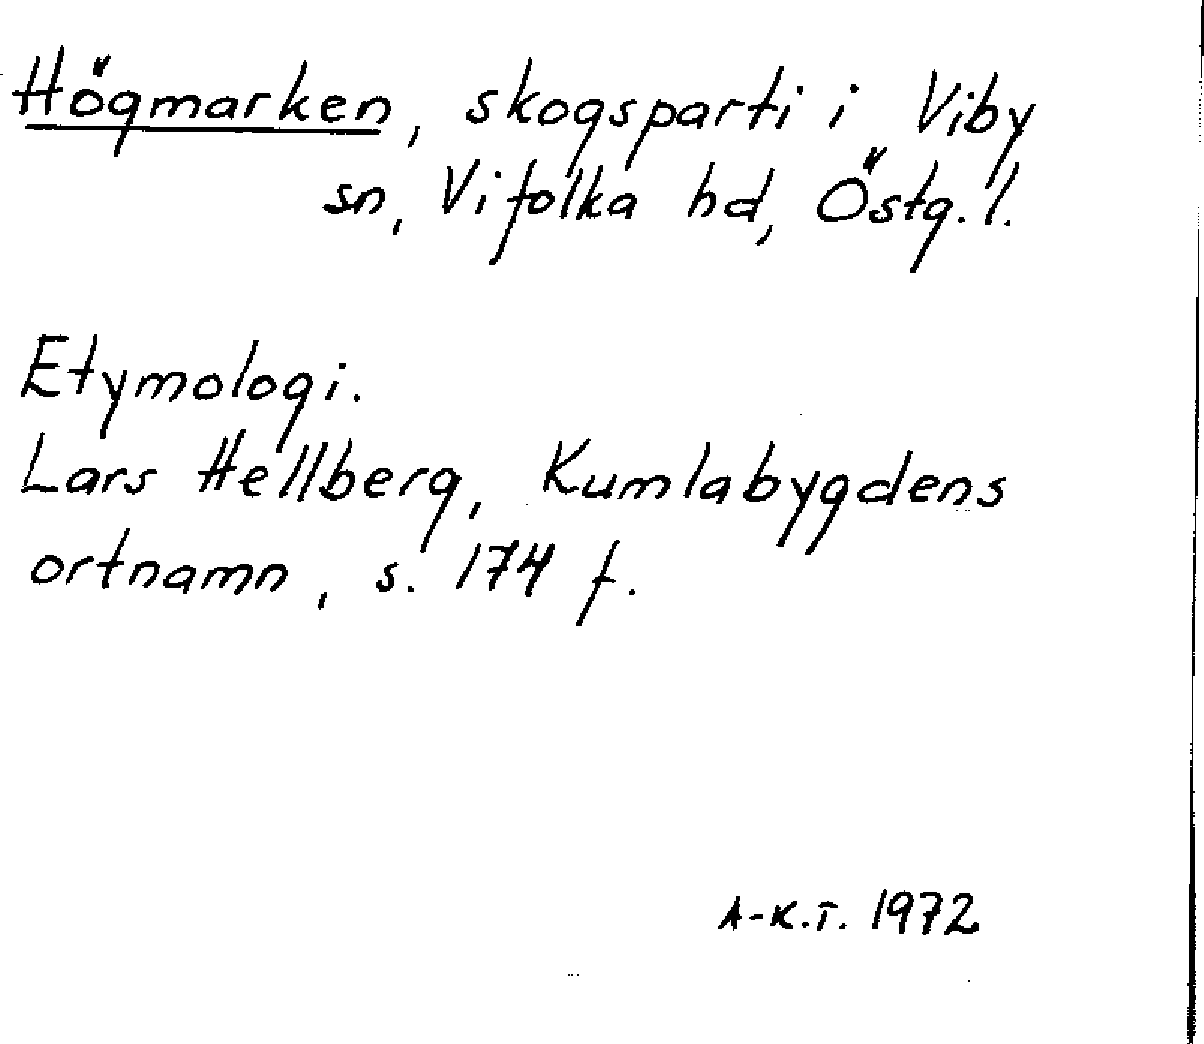 Högmarken, skogsparti i Viby
sn, Vifolka hd, Östg. l.
Etymologi.
Lars Hellberg, Kumlabygdens
ortnamn, s. 174 f.
A-K.T. 1972